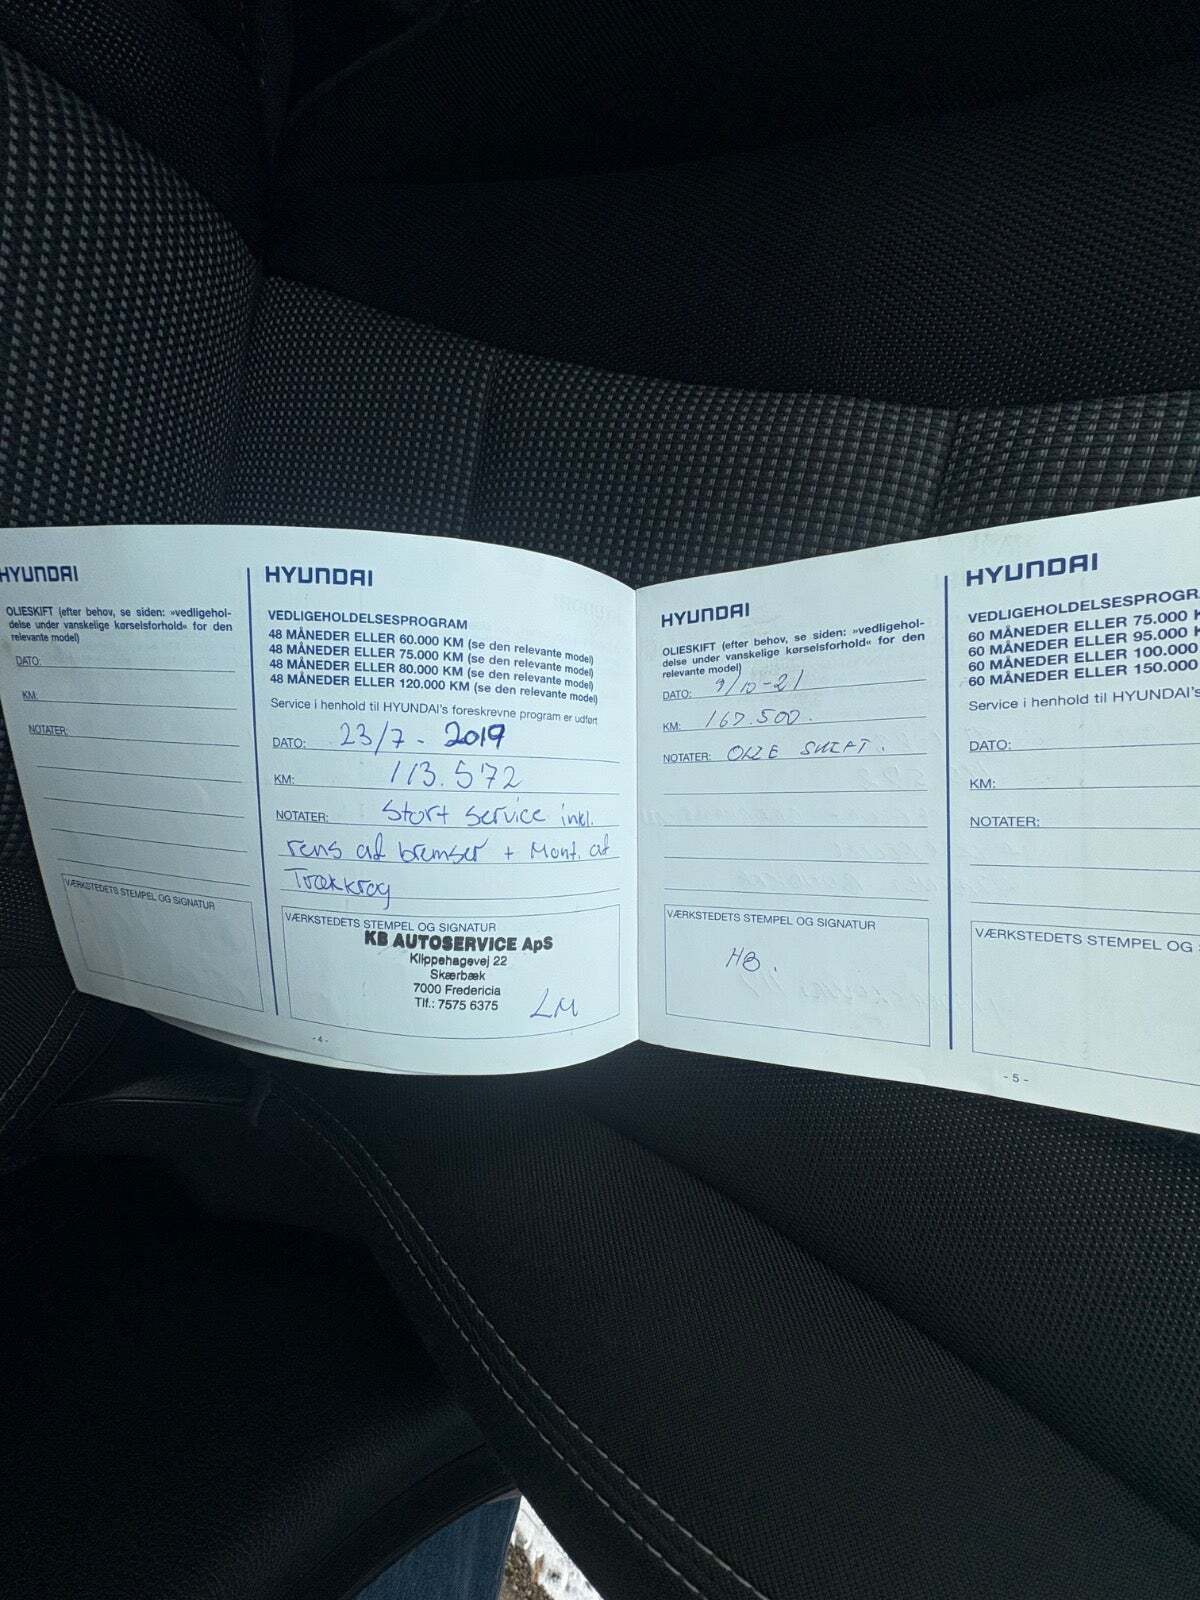 HYUNDAI
OLIESKIFT (efter behov, se siden: »vedligehol-
delse under vanskelige kørselsforhold« for den
relevante model)
DATO:
KM:
NOTATER:
VÆRKSTEDETS STEMPEL OG SIGNATUR
HYUNDAI
VEDLIGEHOLDELSESPROGRAM
48 MÅNEDER ELLER 60.000 KM (se den relevante model)
48 MÅNEDER ELLER 75.000 KM (se den relevante model)
48 MÅNEDER ELLER 80.000 KM (se den relevante model)
48 MÅNEDER ELLER 120.000 KM (se den relevante model)
Service i henhold til HYUNDAI's foreskrevne program er udført
DATO: 23/7 - 2019
KM: 113.572
NOTATER: Stort service inkl.
rens af bremser + Mont. af
Trækkrog
VÆRKSTEDETS STEMPEL OG SIGNATUR
KB AUTOSERVICE ApS
Klippehagevej 22
Skærbæk
7000 Fredericia
Tlf.: 7575 6375
LM
- 4 -
HYUNDAI
OLIESKIFT (efter behov, se siden: »vedligehol-
delse under vanskelige kørselsforhold« for den
relevante model)
DATO: 9/10-21
KM: 167.500.
NOTATER: OLIE SKIFT.
VÆRKSTEDETS STEMPEL OG SIGNATUR
HB.
HYUNDAI
VEDLIGEHOLDELSESPROGRA
60 MÅNEDER ELLER 75.000 K
60 MÅNEDER ELLER 95.000 K
60 MÅNEDER ELLER 100.000
60 MÅNEDER ELLER 150.000
Service i henhold til HYUNDAI's
DATO:
KM:
NOTATER:
VÆRKSTEDETS STEMPEL OG
- 5 -